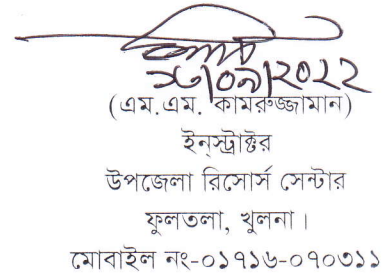 ২৬/০৯/২০২২
(এম.এম. কামরুজ্জামান)
ইন্সট্রাক্টর
উপজেলা রিসোর্স সেন্টার
ফুলতলা, খুলনা।
মোবাইল নং-০১৭১৬-০৭০৩১১